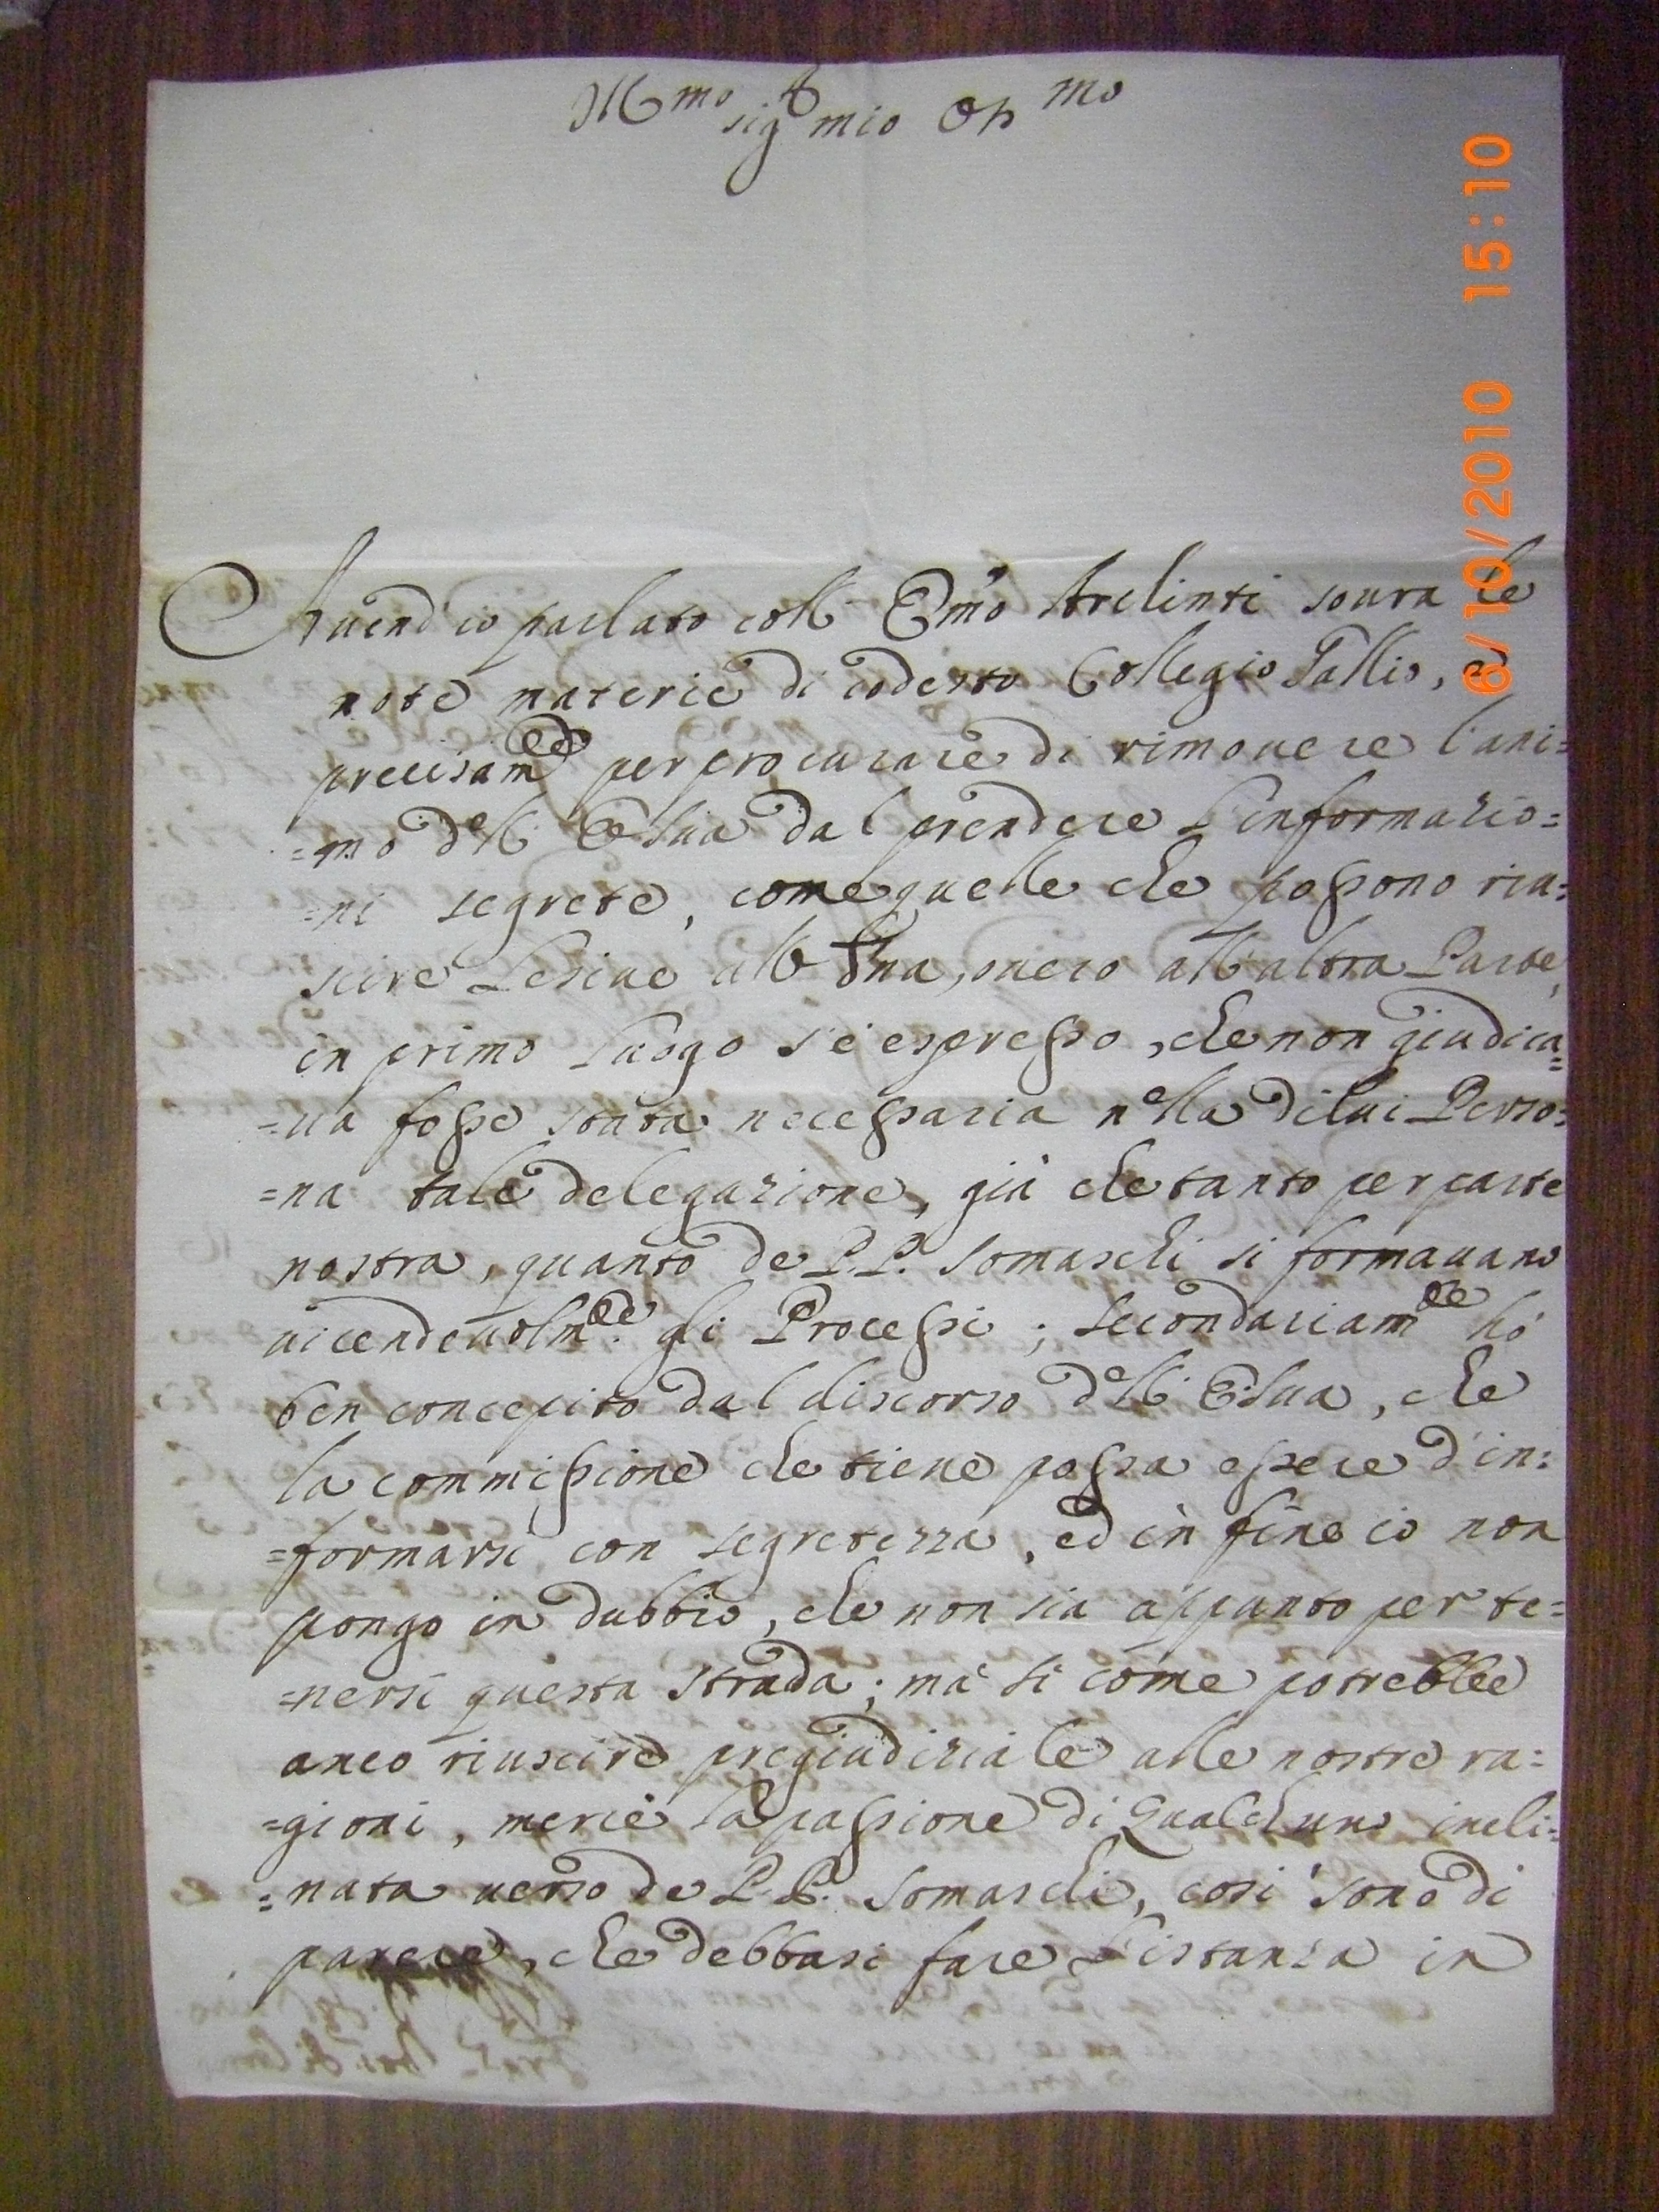 Ill.mo Sig.r mio Oss.mo
Auend' io parlato coll' Em.o Archinti soura le
note materie di codesto Collegio Gallio, e
precisam.te per procurare di rimouere l'ani=
=mo dell' E. Sua dal prendere l'informazio=
=ni segrete, come quelle che possono riu=
scire lesiue all' Una, ouero all' altra Parte,
in primo luogo s'è espresso, che non giudica=
=ua fosse stata necessaria nella di lui Perso=
=na tale delegazione, già che tanto per parte
nostra, quanto de P.P. Somaschi si formauano
uicendeuolm.te gli Processi; secondariam.te hò
ben concepito dal discorso dell' E. Sua, che
la commissione che tiene possa essere d'in=
=formarsi con segretezza, ed in fine io non
pongo in dubbio, che non sia appunto per te=
=nersi questa strada; mà si come potrebbe
anco riuscire pregiudiziale alle nostre ra=
=gioni, mercè la passione di Qualchuno incli=
=nata uerso de P.P. Somaschi, così sono di
parere, che debbasi fare l'istanza in
6/10/2010 15:10